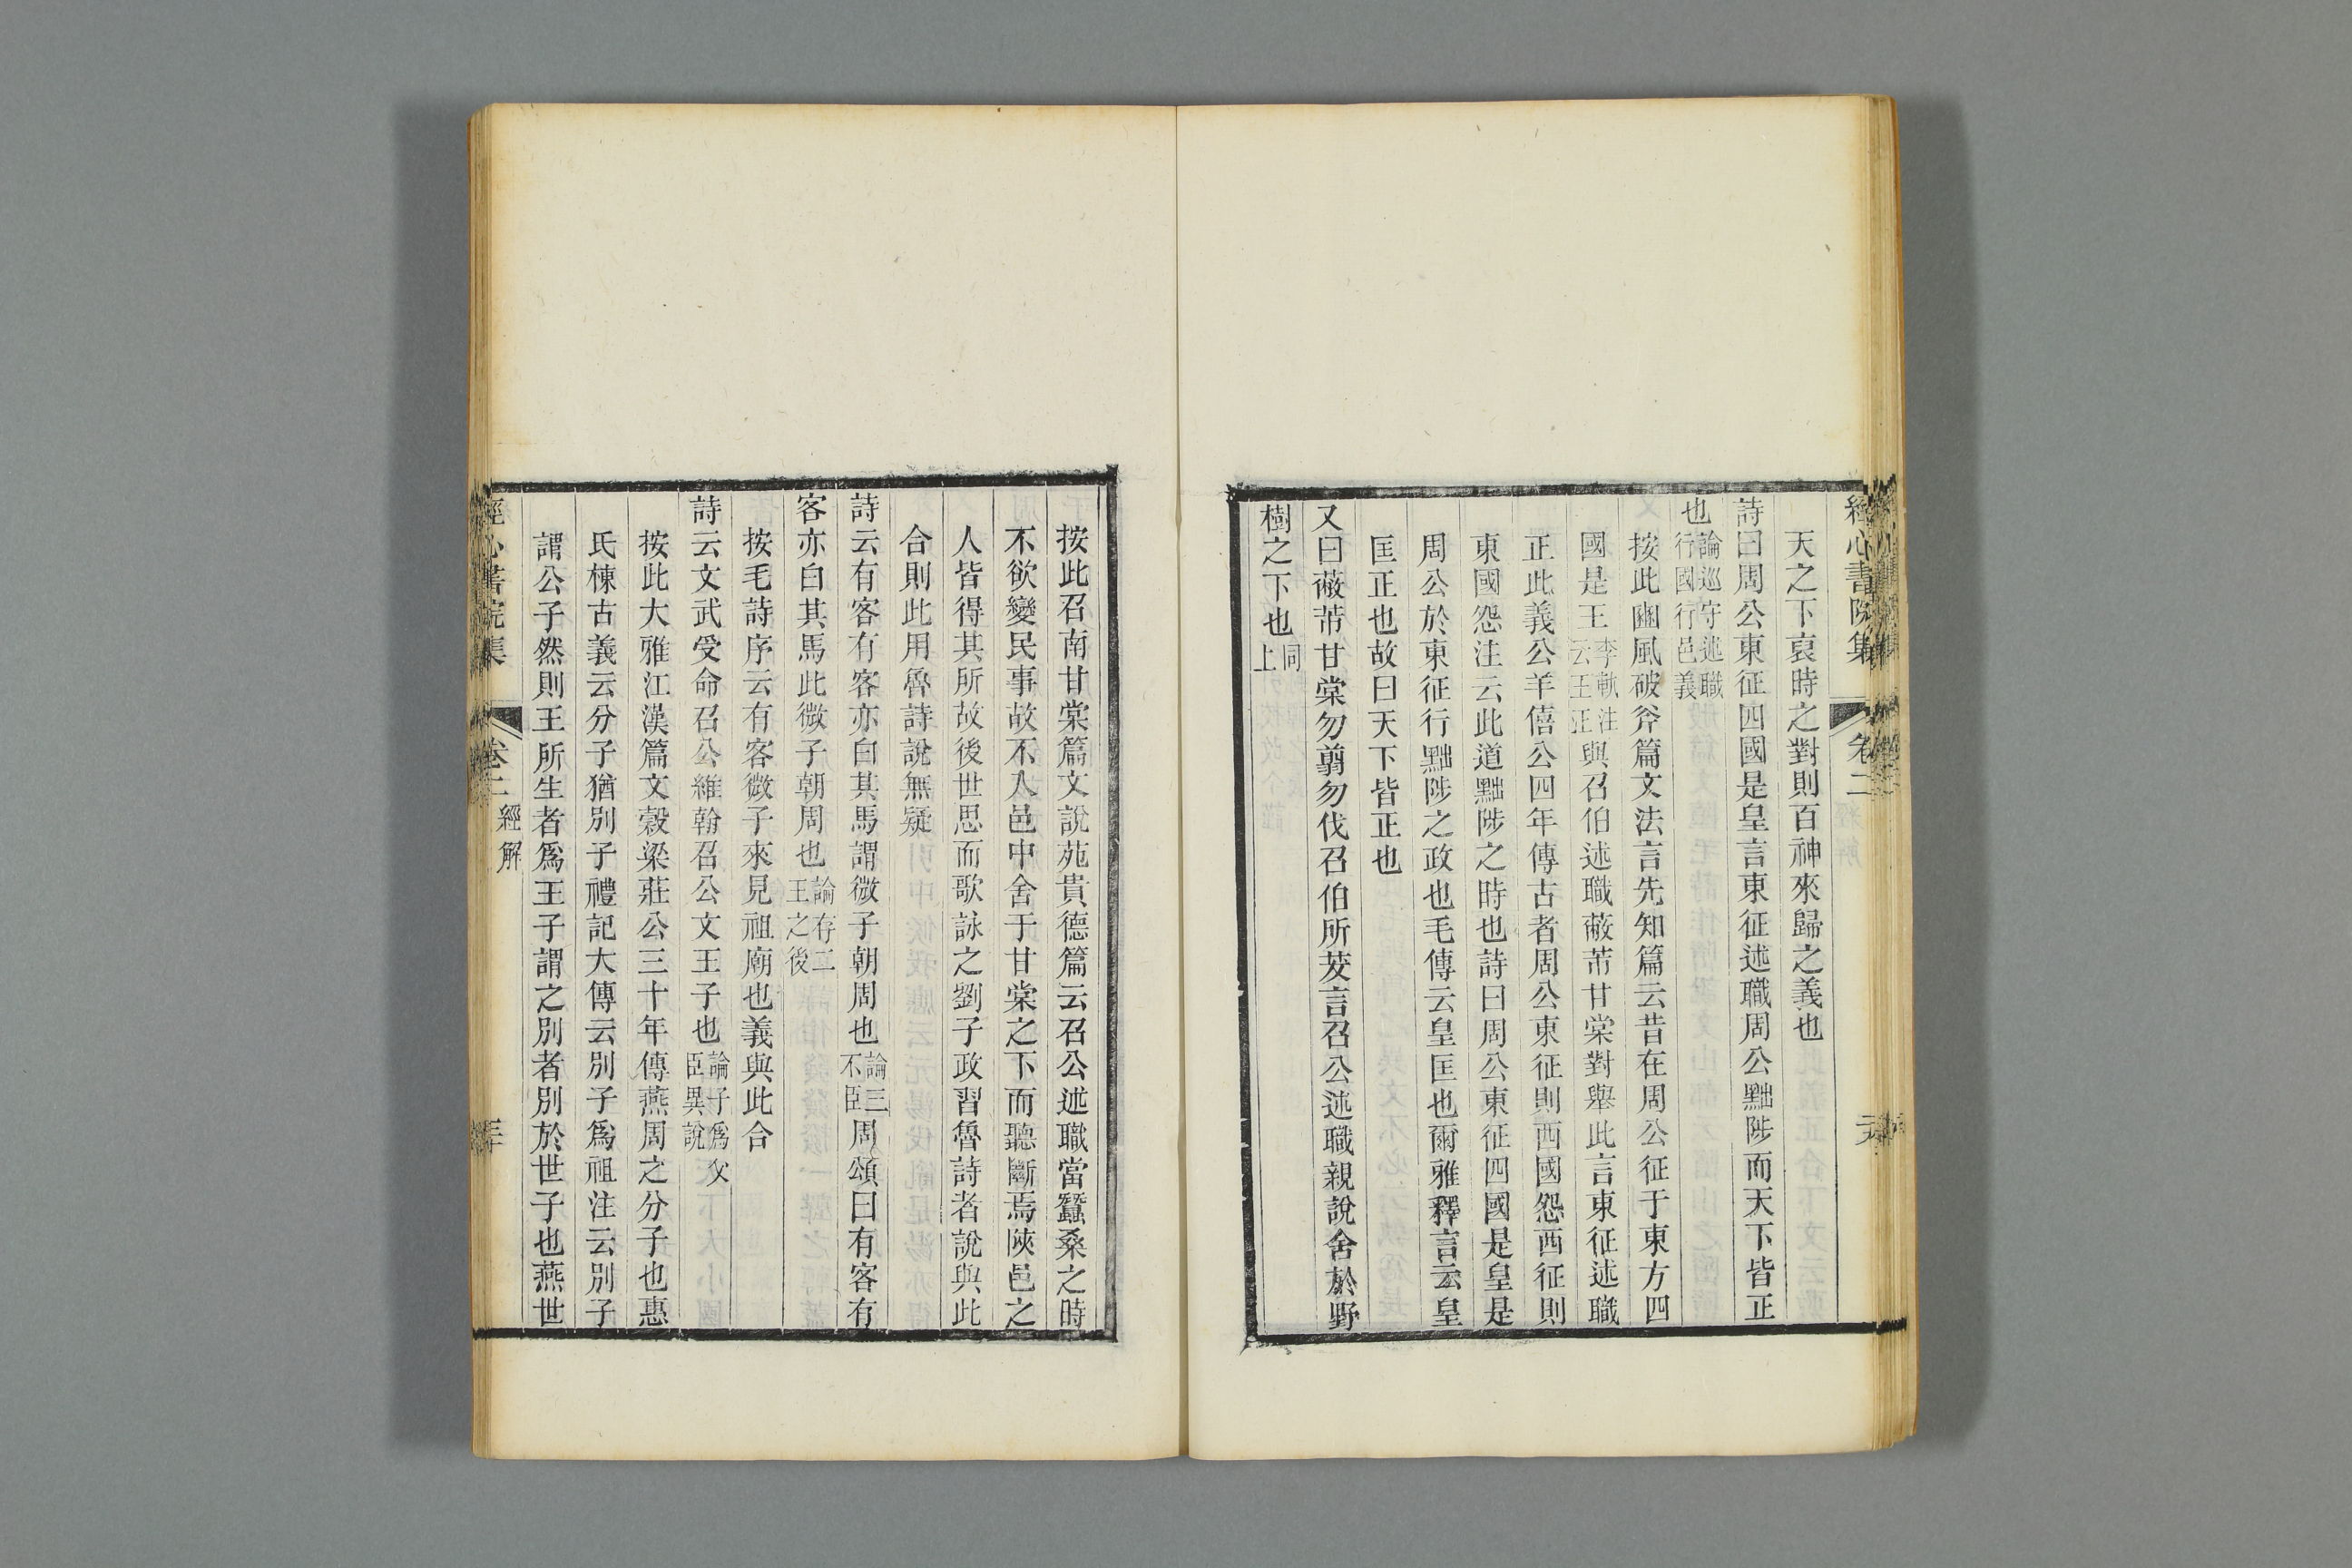 經心書院集 卷二
天之下哀時之對則百神來歸之義也
詩曰周公東征四國是皇言東征述職周公黜陟而天下皆正
也論巡守述職行國行邑義
按此豳風破斧篇文法言先知篇云昔在周公征于東方四
國是王李軌注云王正與召伯述職蔽芾甘棠對舉此言東征述職
正此義公羊僖公四年傳古者周公東征則西國怨西征則
東國怨注云此道黜陟之時也詩曰周公東征四國是皇是
周公於東征行黜陟之政也毛傳云皇匡也爾雅釋言云皇
匡正也故曰天下皆正也
又曰蔽芾甘棠勿翦勿伐召伯所茇言召公述職親說舍於野
樹之下也同上
按此召南甘棠篇文說苑貴德篇云召公述職當蠶桑之時
不欲變民事故不入邑中舍于甘棠之下而聽斷焉陝邑之
人皆得其所故後世思而歌詠之劉子政習魯詩者說與此
合則此用魯詩說無疑
詩云有客有客亦白其馬謂微子朝周也論三不臣周頌曰有客有
客亦白其馬此微子朝周也論存二王之後
按毛詩序云有客微子來見祖廟也義與此合
詩云文武受命召公維翰召公文王子也論子爲父臣異說
按此大雅江漢篇文穀梁莊公三十年傳燕周之分子也惠
氏棟古義云分子猶別子禮記大傳云別子爲祖注云別子
謂公子然則王所生者爲王子謂之別者別於世子也燕世
經心書院集 卷二 經解